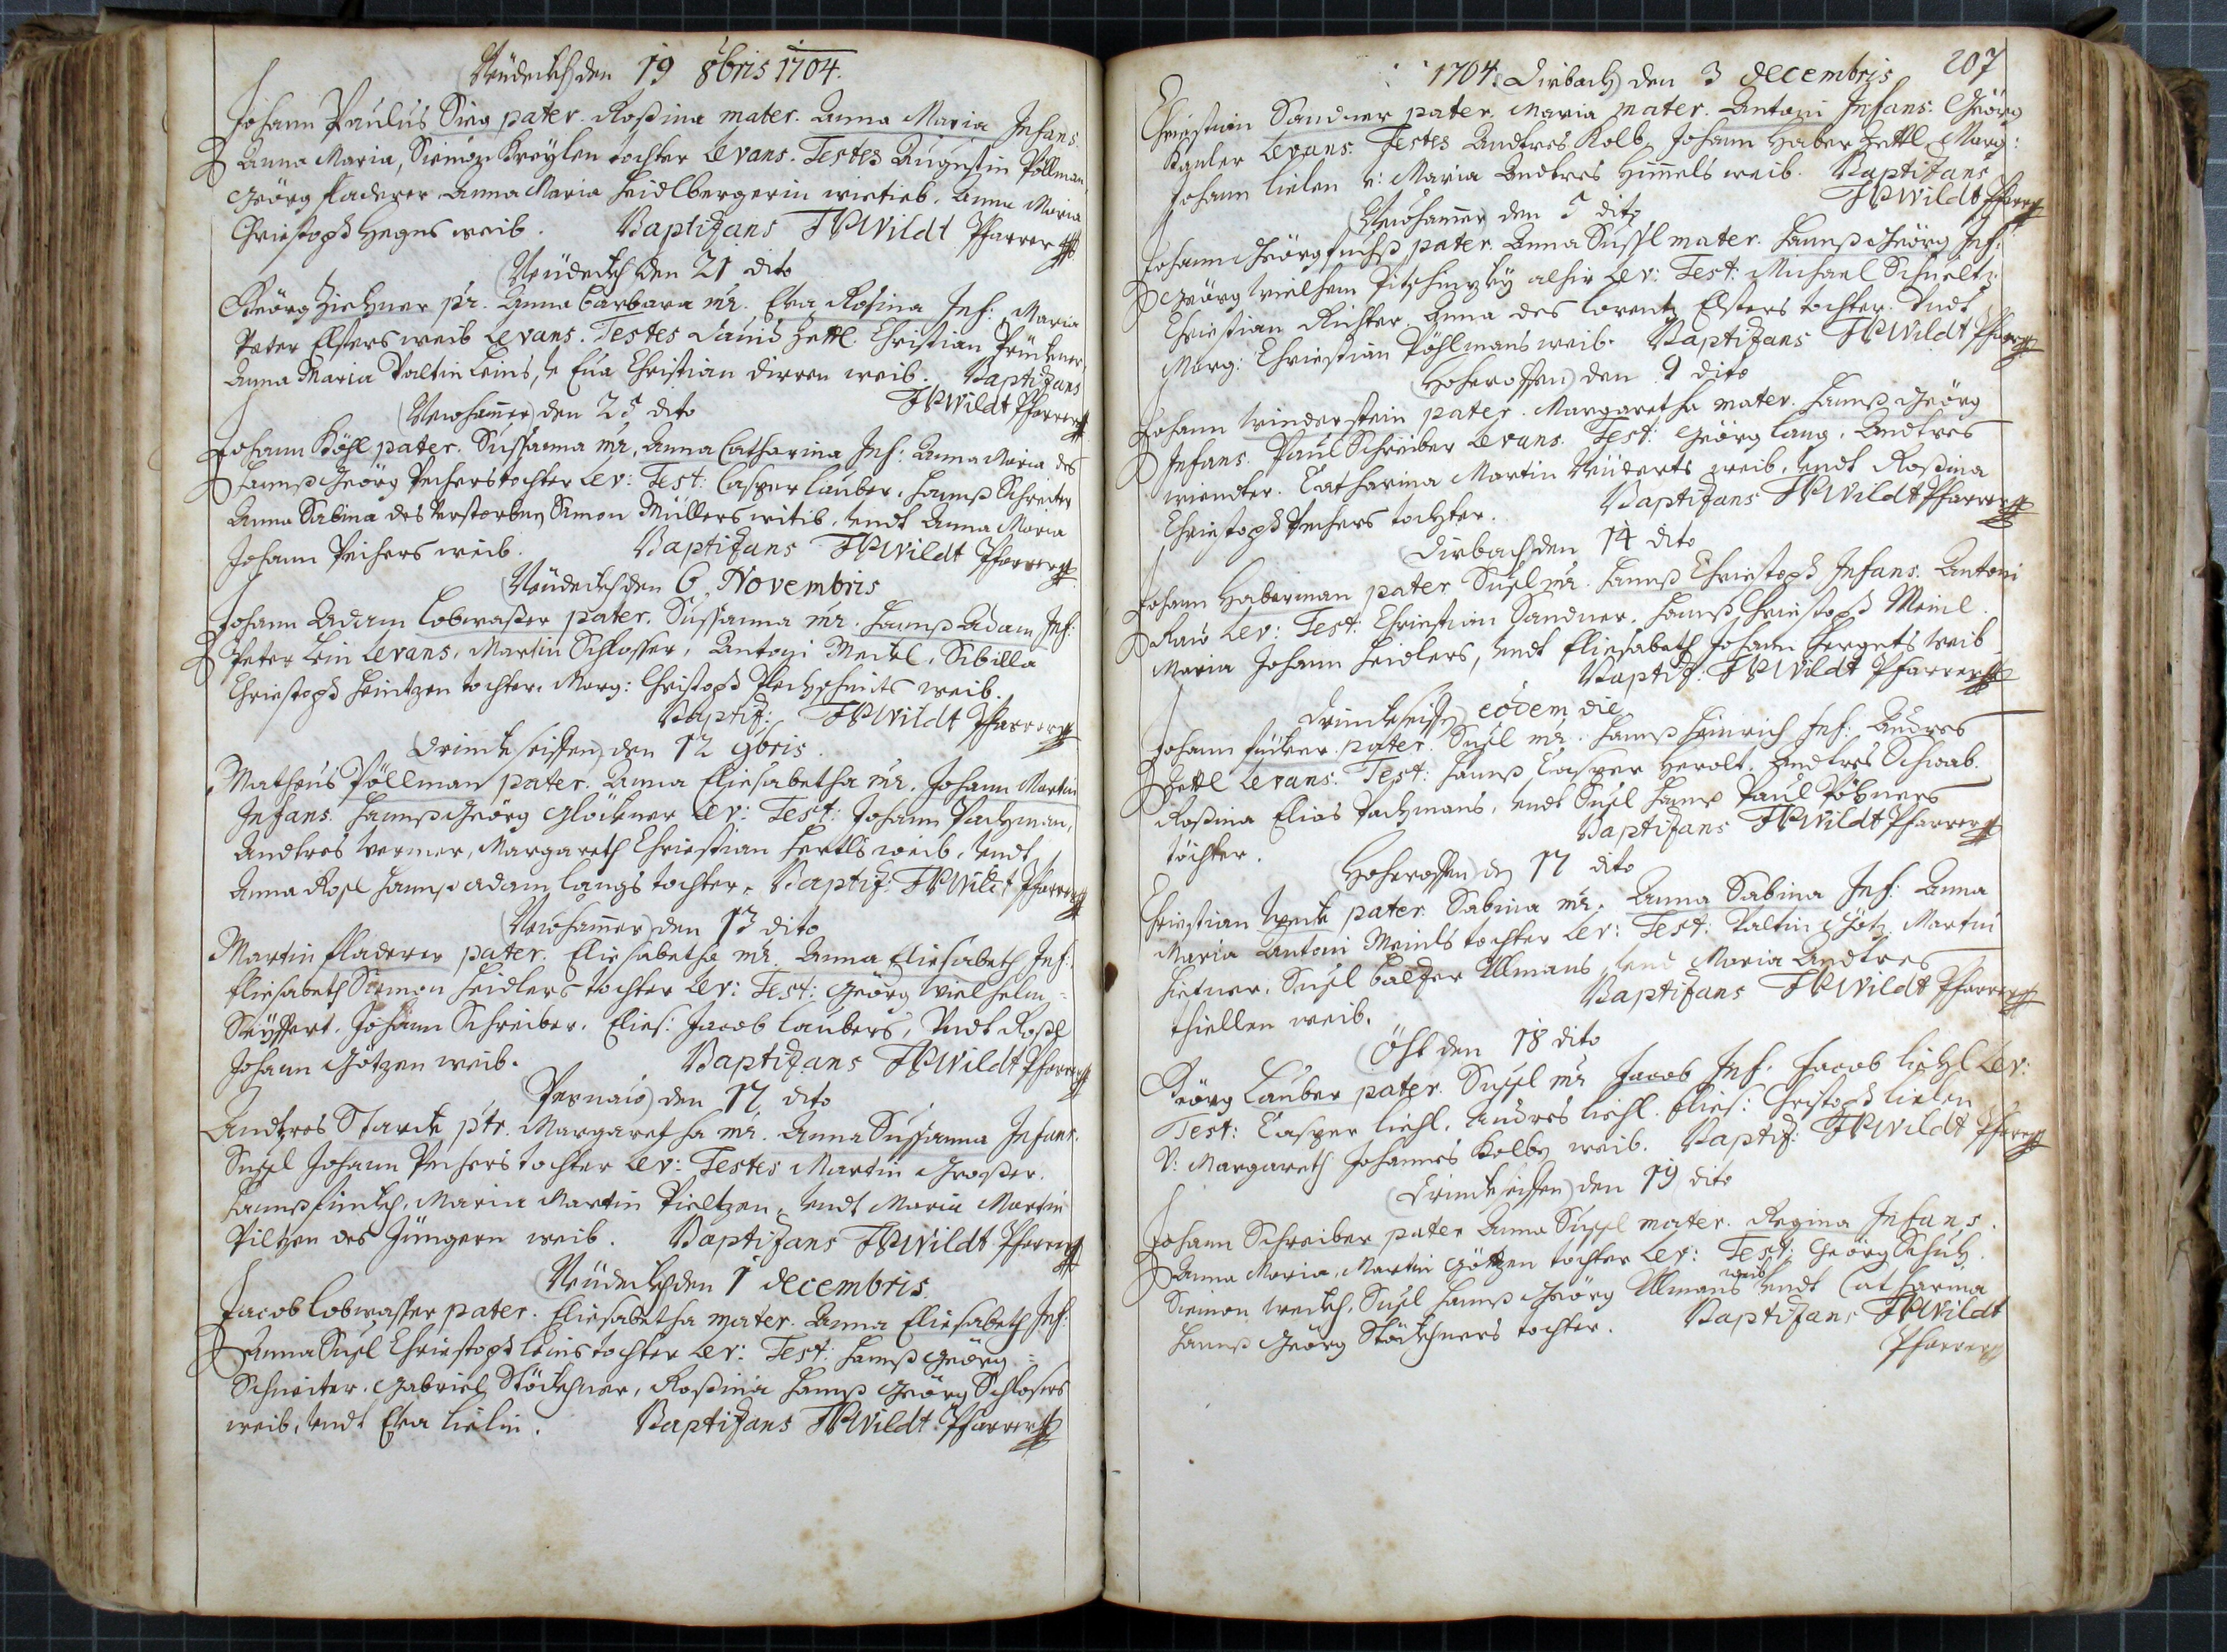 Neüdeckh den 19 8bris 1704.
Johann Paulus Sieg pater. Roßina mater. Anna Maria Infans.
Anna Maria, Siemon tochter Levans. Testes Augustin Pöllman,
Geörg fladerer Anna Maria Heidlbergerin wietieb, Anna Maria
Christoph weib. Baptizans JPWildt Pfarrer
Neüdeckh den 21 dito
Geörg pr. Anna barbara mr. Eva Rosina Inf: Maria
Peter Elsters weib Levans. Testes David Zettl. Christian
Anna Maria Valtin Leins, v Eva Christian weib. Baptizans
JPWildt Pfarrer
Newhamer den 25 dito
Johann Köhl pater. Sussanna mr. Anna Catharina Inf: Anna Maria des
Hannß Geörg Pechers tochter Lev: Test: Casper Lauber, Hannß Schreiter
Anna Sabina des verstorbnen Simon Müllers witib, undt Anna Maria
Johann Pechers weib. Baptizans JPWildt Pfarrer
Neüdeckh den 6 Novembris
Johann Adam Lobwaßer pater. Sussanna mr. Hannß Adam Inf:
Peter Lein Levans, Martin Schlosser, Antoni Meichl, Sibilla
Christoph Heintzen tochter. Marg: Christoph weib.
Baptiz: JPWildt Pfarrer
Trinckseiffen den 12 9bris.
Matheus Pöllman pater. Anna Eliesabetha mr. Johann Martin
Infans. Hannß Geörg Glöckner Lev: Test: Johann Pachman,
Andres Wermer, Margareth Christian Hertls weib, undt
Anna Rosl Hannß adam langs tochter. Baptiz: JPWildt Pfarrer
Newhamer den 13 dito
Martin fladerer pater. Eliesabetha mr. Anna Eliesabeth Inf:
Eliesabeth Siemon Heidlers tochter Lev: Test: Geörg Vielhelm
Seyffert. Johann Schreiber. Elies: Jacob Laubers, Undt Rosl
Johann Götzen weib. Baptizans JPWildt Pfarrer
Pernaw den 17 dito
Andres Starck ptr. Margaretha mr. Anna Sussanna Infans.
Susl Johann Pechers tochter Lev: Testes Martin Großer.
Hannß, Maria Martin Pieltzen, undt Maria Martin
Piltzen des Jüngern weib. Baptizans JPWildt Pfarrer
Neüdeckh den 1 decembris.
Jacob Lobwasser pater. Eliesabetha mater. Anna Eliesabeth Inf:
Anna Susl Christoph Leins tochter Lev: Test: Hannß Geörg
Schreiter. Gabriel Stöckhner, Roßina Hannß Geörg Schlosers
weib, undt Eva Lielin. Baptizans JPWildt Pfarrer
207
1704. Dirbach den 3 decembris
Christian Sandner pater. Maria mater. Antoni Infans. Geörg
Levans. Testes Andres Kolb, Johann Haber Zettl, Marg:
Johann Lielen v: Maria Andres Himmels weib. Baptizans
JPWildt Pfarrer
Newhamer den 5 dito
Johann Geörg fuchß pater. Anna Sussl mater. Hannß Geörg Inf:
Geörg Vielhem alhier Lev: Test: Michael Schueltz
Christian Richter, Anna des Lorentz Elsters tochter. Undt
Marg: Christian Pöhlmans weib. Baptizans JPWildt Pfarrer
Hoheroffen den 9 dito
Johann Winderstein pater. Margaretha mater. Hannß Geörg
Infans. Paul Schreiber Levans. Test: Geörg lang. Andres
Catharina Martin weib, undt Roßina
Christoph Pechers tochter. Baptizans JPWildt Pfarrer
Dirbach den 14 dito
Johann Haberman pater Susl mr. Hannß Christoph Infans. Antoni
Raw Lev: Test: Christian Sandner. Hannß Christoph Meinl.
Maria Johann Heidlers, undt Eliesabeth Johann Hergets weib
Baptiz: JPWildt Pfarrer
Trinckseiffen eodem die
Johann pater. Susl mr. Hannß Heinrich Inf: Andres
Zettl Levans. Test: Hannß Casper Herolt. Andres Schwab.
Roßina Elias Pachmans, undt Susl Hannß Paul
töchter. Baptizans JPWildt Pfarrer
Hoheroffen den 17 dito
Christian pater. Sabina mr. Anna Sabina Inf: Anna
Maria Antoni Meinls tochter Lev: Test: Valtin Götz. Martin
Susl balzer Ullmans, und Maria Andres
thiellen weib. Baptizans JPWildt Pfarrer
Ößt den 18 dito
Geörg Lauber pater. Susl mr Jacob Inf. Jacob Liehl Lev:
Test: Casper Liehl, Andres Liehl. Elies: Christoph Lielen
V: Margareth Johannes Kolben weib. Baptiz: JPWildt Pfarrer
Trinckseiffen den 19 dito
Johann Schreiber pater Anna Sussl mater. Regina Infans.
Anna Maria, Martin Götzen tochter Lev: Test: Geörg Schuh.
Siemon, Susl Hannß Geörg Ullmans weib undt Catharina
Hannß Geörg Stöckhners tochter. Baptizans JPWildt
Pfarrer